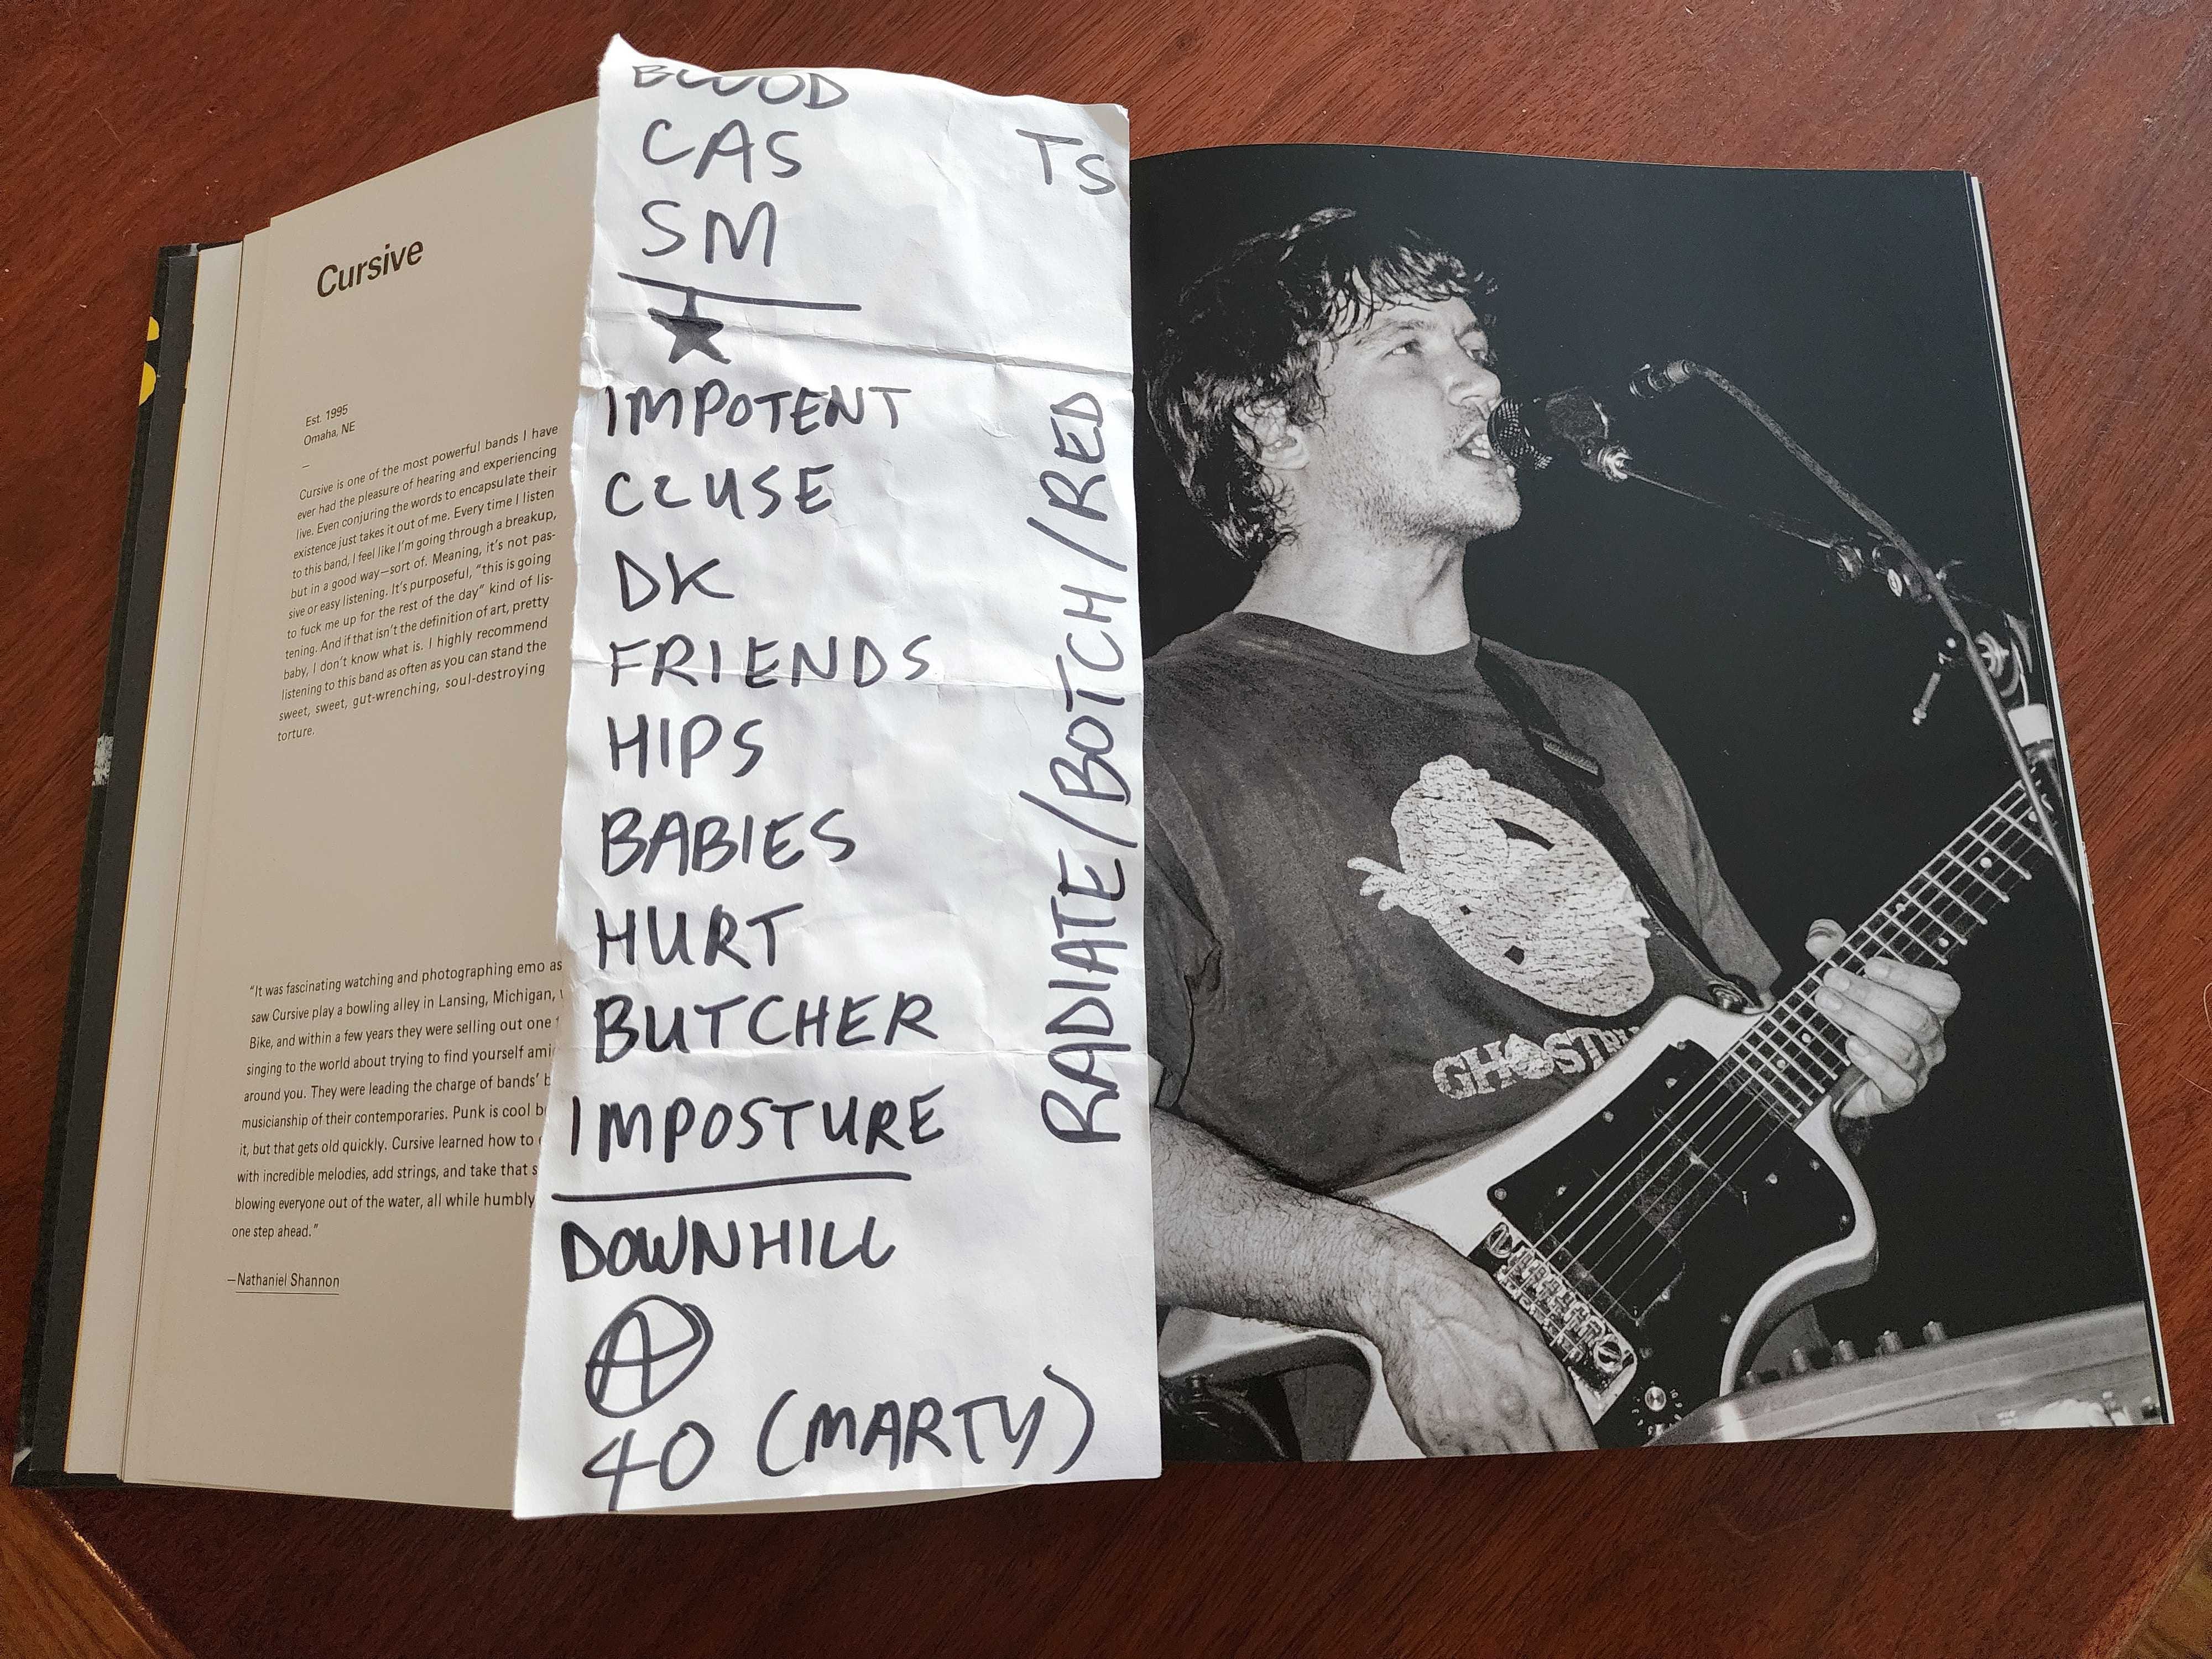 Cursive
Est. 1995
Omaha, NE
–
Cursive is one of the most powerful bands I have
ever had the pleasure of hearing and experiencing
live. Even conjuring the words to encapsulate their
existence just takes it out of me. Every time I listen
to this band, I feel like I'm going through a breakup,
but in a good way—sort of. Meaning, it's not pas-
sive or easy listening. It's purposeful, "this is going
to fuck me up for the rest of the day" kind of lis-
tening. And if that isn't the definition of art, pretty
baby, I don't know what is. I highly recommend
listening to this band as often as you can stand the
sweet, sweet, gut-wrenching, soul-destroying
torture.
"It was fascinating watching and photographing emo as
saw Cursive play a bowling alley in Lansing, Michigan,
Bike, and within a few years they were selling out one
singing to the world about trying to find yourself
around you. They were leading the charge of bands'
musicianship of their contemporaries. Punk is cool
it, but that gets old quickly. Cursive learned how to
with incredible melodies, add strings, and take that
blowing everyone out of the water, all while humbly
one step ahead."
—Nathaniel Shannon
BLOOD
CAS
SM
IMPOTENT
CLUSE
DK
FRIENDS
HIPS
BABIES
HURT
BUTCHER
IMPOSTURE
DOWNHILL
A
40 (MARTY)
TS
RADIATE/BOTCH/RED
GHOSTB